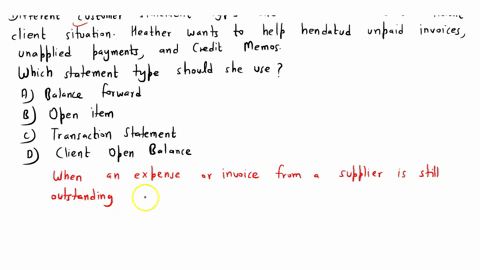 Different customer statement type
client situation. Heather wants to help hendatud unpaid invoices,
unapplied payments, and Credit Memos.
Which statement type should she use?
A) Balance forward
B) Open item
C) Transaction Statement
D) Client Open Balance
When an expense or invoice from a supplier is still
outstanding